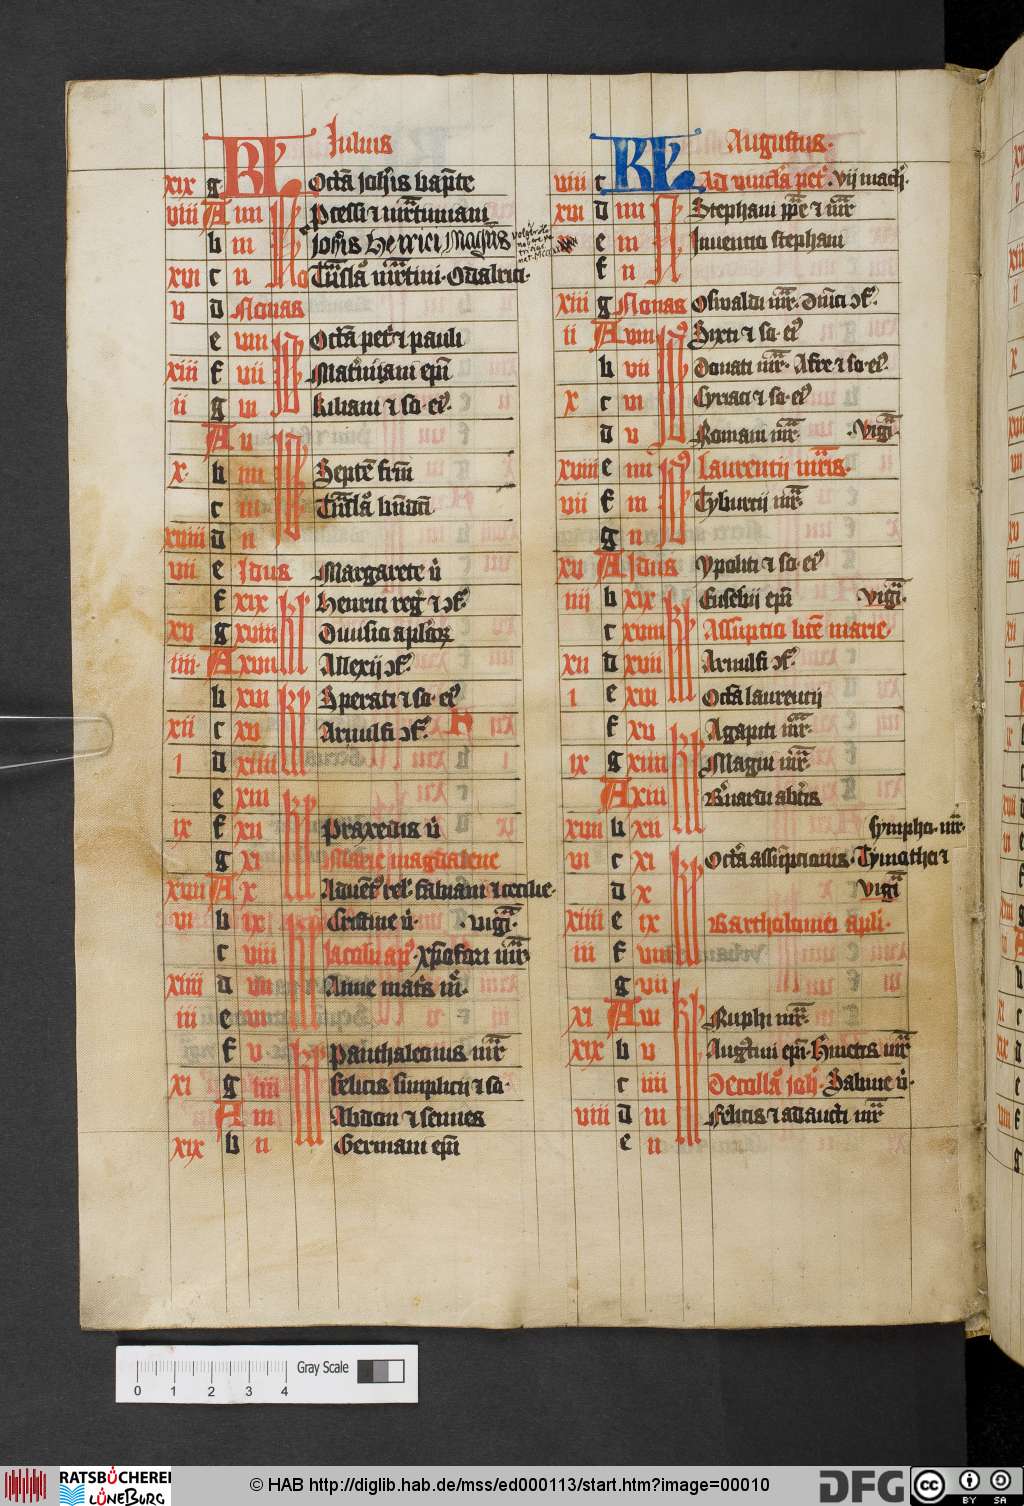 Iulius
xix g KL Octa͞ joh͞is bap͞te
viii A iiii P͏cessi ⁊ m͞rtiniani
b iii
xvi c ii No T͞nsla͞ m͞rtini · Odalrici ·
v d Nonas
e viii Id Octa͞ pet͛ ⁊ pauli
xiii f vii ep͞i
ii g vi Kiliani ⁊ so· ei᷒·
A v Id
x· b iiii Septe͞ fr͞m
c iii T͞nsla͞ b͞ndci͞
xviii d ii
vii e Idus Margarete v͛
f xix kl Henrici reg͛ ⁊ ɔf͛·
xv g xviii Diuisio ap͞lor͛
iiii· A xvii Allexij ɔf͛·
b xvi kl Sperati ⁊ so· ei᷒
xii c xv Arnulfi ɔf͛·
i d xiiii
e xiii kl
ix f xii Praxedis v͛
g xi Marie magdalene
xvii A x
vi b ix kl Cristine v͛· · vigi͞·
c viii Jacobi ap͛· xp͞ofori m͞r·
xiiii d vii Anne mat͛s m͛·
iii e vi
f v kl Panthaleonis m͞r
xi g iiii felicis simplicij ⁊ so·
A iii Abdon ⁊ sennes
xix b ii Germani ep͞i
Augustus·
viii c KL Ad vincl͞a pet͛· vij mach͛·
xvi d iiii N Stephani p͞pe ⁊ m͞r
e iii Inuentio stephani
f ii
xiii g Nonas Oswaldi m͞r· Dm͞ici ɔf͛·
ii A viii Id Sixti ⁊ so· ei᷒
b vii Donati m͞r· Afre ⁊ so· ei᷒·
x c vi Cyriaci ⁊ so· ei᷒·
d v Romani m͞r· · Vigi͞·
xviii e iiii Id Laurentij m͞ris·
vii f iii Tyburtij m͞r·
g ii
xv A Idus Ypoliti ⁊ so· ei᷒
iiij b xix kl Eusebij ep͞i vigi͞·
c xviii Assu͞ptio b͞te marie·
xii d xvii Arnulfi ɔf͛·
i e xvi Octa͞ laurentij
f xv kl Agapiti m͞r·
ix g xiiii Magni m͞r·
A xiii B͛nardi ab͞tis
xvii b xii sympho· m͞r·
vi c xi kl Octa͞ assu͞ptionis· Tymothei ⁊
d x vigi͞
xiiii e ix Bartholomei ap͞li·
iii f viii
g vii kl
xi A vi Ruphi m͞r·
xix b v Aug͛tini ep͞i· H͛metis m͞r
c iiii Decolla͞ joh͛· Sabine v͛·
viii d iii Felicis ⁊ adaucti m͞r
e ii
Gray Scale
0 1 2 3 4
RATSBÜCHEREI LÜNEBURG
© HAB http://diglib.hab.de/mss/ed000113/start.htm?image=00010
DFG
cc BY SA